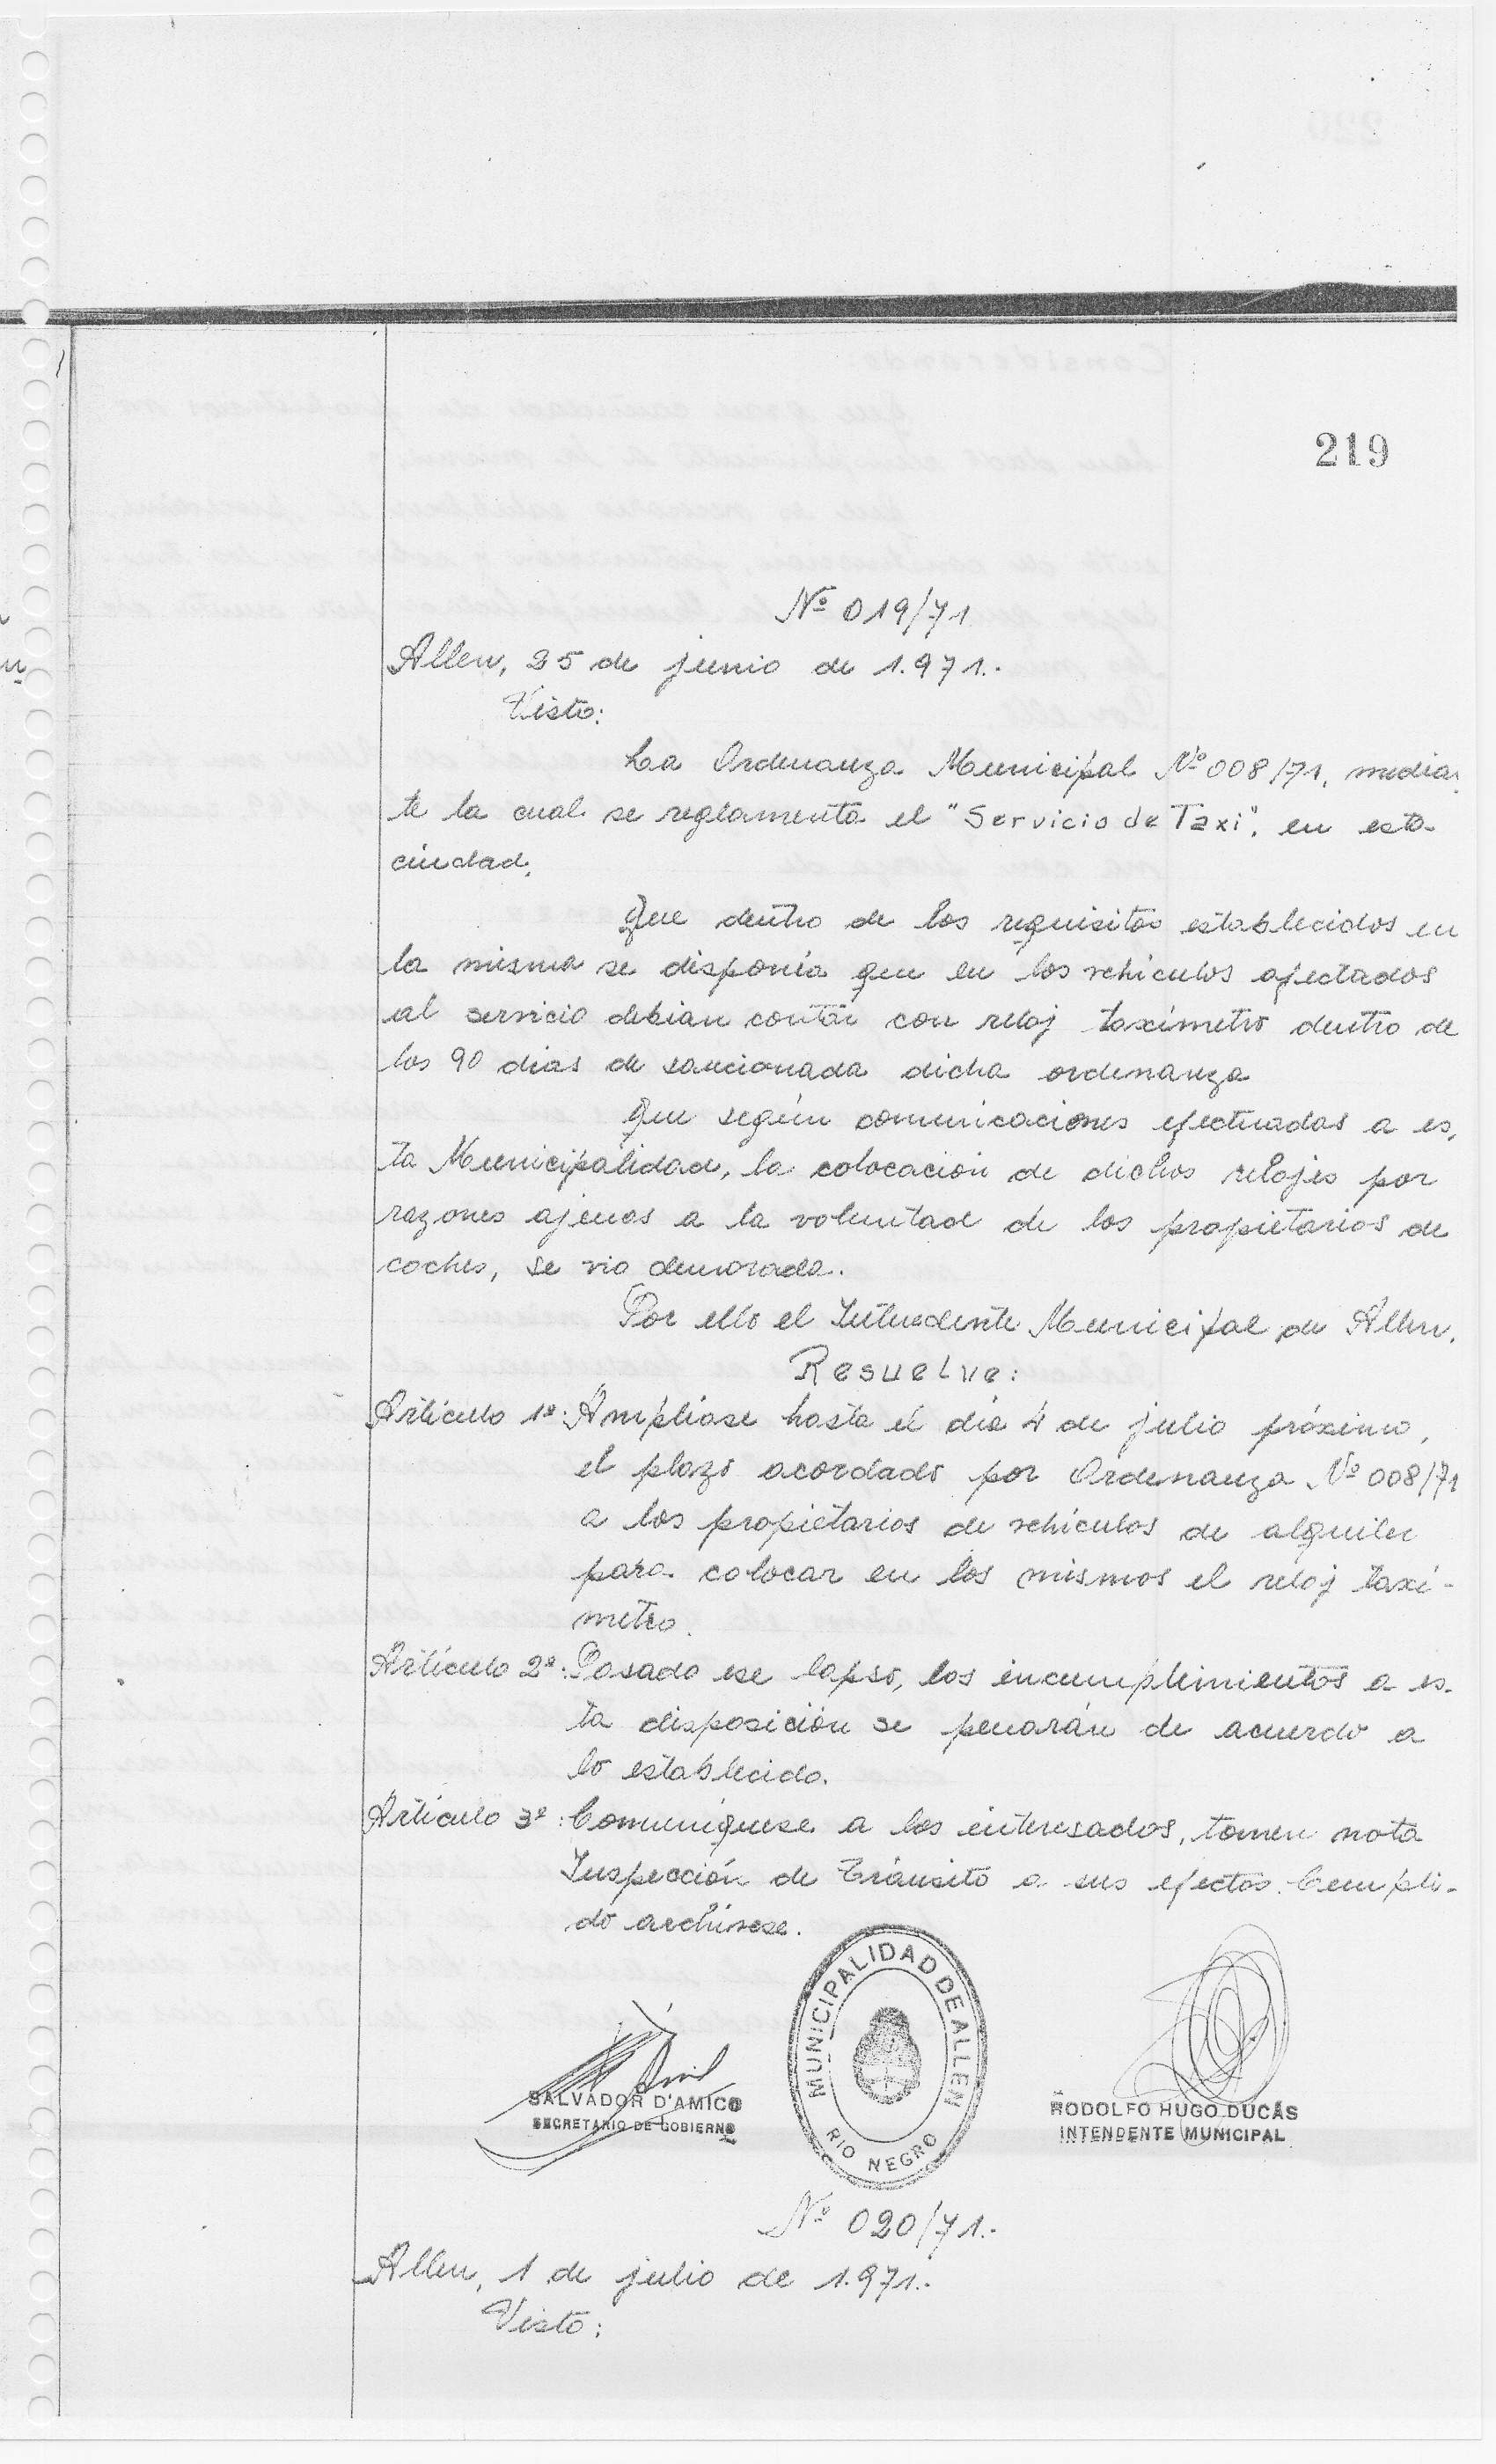 219
Nº 019/71
Allen, 25 de junio de 1.971.-
Visto:
La Ordenanza Municipal Nº 008/71, median
te la cual se reglamenta el "Servicio de Taxi", en esta
ciudad.
Que dentro de los requisitos establecidos en
la misma se disponía que en los vehículos afectados
al servicio debian contar con reloj taxímetro dentro de
los 90 dias de sancionada dicha ordenanza
Que según comunicaciones efectuadas a es-
ta Municipalidad, la colocación de dichos relojes por
razones ajenas a la voluntad de los propietarios de
coches, se vio demorada.
Por ello el Intendente Municipal de Allen.
Resuelve:
Artículo 1º: Ampliase hasta el día 4 de julio próximo,
el plazo acordado por Ordenanza Nº 008/71
a los propietarios de vehículos de alquiler
para colocar en los mismos el reloj taxí-
metro.
Artículo 2º: Pasado ese lapso, los incumplimientos a es-
ta disposición se penarán de acuerdo a
lo establecido.
Artículo 3º: Comuníquese a los interesados, tomen nota
Inspección de Tránsito a sus efectos. Cumpli-
do archívese.
MUNICIPALIDAD DE ALLEN
RIO NEGRO
SALVADOR D'AMICO
SECRETARIO DE GOBIERNO
RODOLFO HUGO DUCÁS
INTENDENTE MUNICIPAL
Nº 020/71.-
Allen, 1 de julio de 1.971.-
Visto: